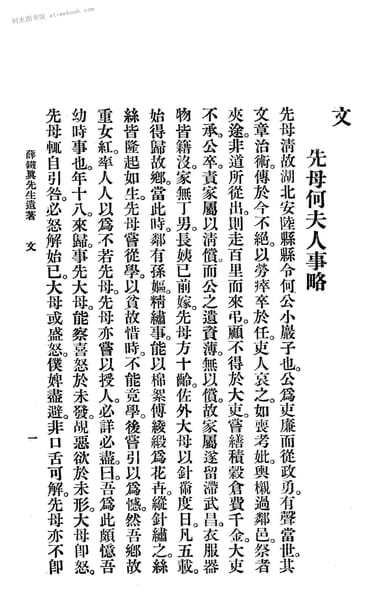 时光图书馆 · etimebook.com
文
先母何夫人事略
先母清故湖北安陸縣縣令何公小巖子也。公爲吏廉而從政勇。有聲當世。其
文章治術。傳於今不絕。以勞瘁卒於任。吏人哀之。如喪考妣。輿櫬過鄰邑。祭者
夾途。非道所從出。則走百里而來弔。顧不得於大吏。嘗繕積穀倉。費千金。大吏
不承。公卒。責家屬以淸償。而公之遺資薄。無以償。故家屬遂留滯武昌。衣服器
物皆籍沒。家無丁男。長姨已前嫁。先母方十齡。佐外大母以針黹度日。凡五載。
始得歸故鄉。當此時。鄰有孫嫗。精繡事。能以棉絮傅綾緞爲花卉。縱針繡之。絲
絲皆隆起如生。先母嘗從學。以貧故惜時。不能竟學。後嘗引以爲憾。然吾鄉故
重女紅。率人人以爲不若先母。先母亦嘗以授人。必詳必盡。曰。吾爲此頗憶吾
幼時事也。年十八。來歸事先大母。能察喜怒於未發。覘惡欲於未形。大母卽怒。
先母輒自引咎。必怒解始已。大母或盛怒。僕婢盡避。非口舌可解。先母亦不卽
薛鐵夷先生遺著　文　一